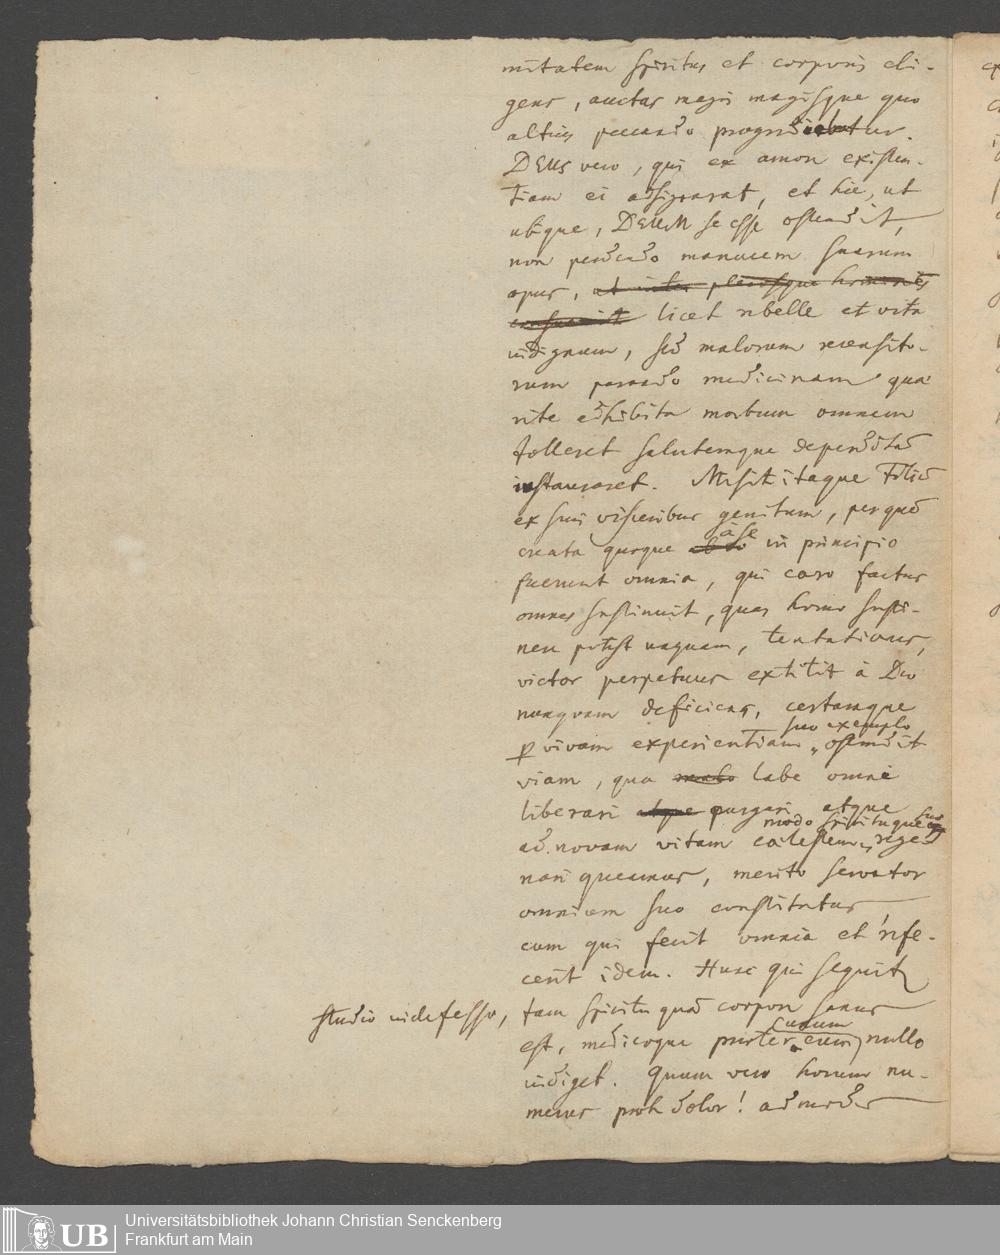 mitatem spiritus et corporis eli-
gens, auctas magis magisque quo
altius peccando progrediebatur.
DEUS vero, qui ex amore existen-
tiam ei assignarat, et hic, ut
ubique, DEUM se esse ostendit,
non perdendo manuum suarum
opus, et inter plerosque homines
consuevit licet rebelle et vita
indignum, sed malorum recensito-
rum parando medicinam quae
rite exhibita morbum omnem
tolleret salutemque deperditam
instauraret. Misit itaque Filium
ex sui visceribus genitum, per quem
à se
creata quoque in principio
fuerunt omnia, qui caro factus
omnes sustinuit, quas homo susti-
nere potest unquam, tentationes,
victor perpetuus extitit à Deo
nunquam deficiens, certamque
suo exemplo
p vivam experientiam ostendit
viam, qua labe omni
liberari atque purgari atque
modo spirituque suo
ad novam vitam coelestem rege-
nari queamus, merito servator
omnium suo constitutus
cum qui fecit omnia et refe-
cerit idem. Hunc qui sequitur
studio indefesso, tam spiritu quam corpore sanus
unum
est, medicoque praeter eum nullo
indiget. Quum vero horum nu-
merus proh dolor! admodum
Universitätsbibliothek Johann Christian Senckenberg
Frankfurt am Main
UB